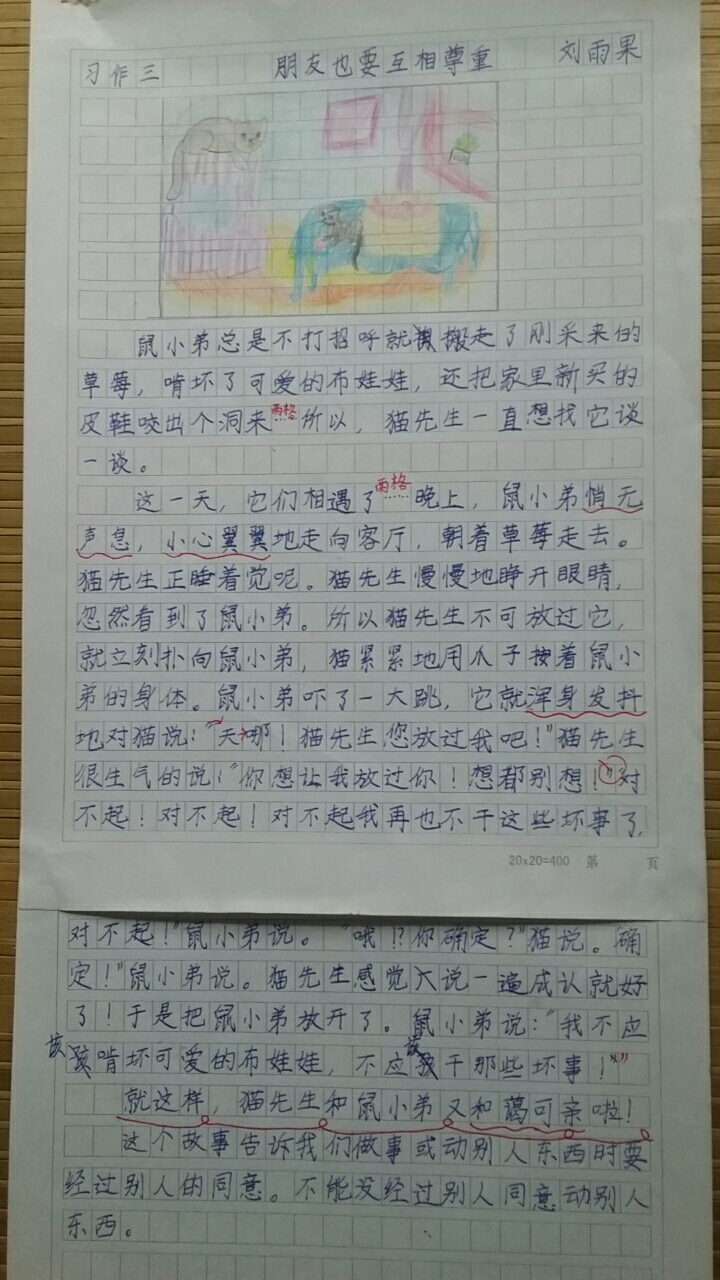 习作三 朋友也要互相尊重 刘雨果
鼠小弟总是不打招呼就搬走了刚采来的
草莓，啃坏了可爱的布娃娃，还把家里新买的
皮鞋咬出个洞来 两格 所以，猫先生一直想找它谈
一谈。
这一天，它们相遇了 两格 晚上，鼠小弟悄无
声息，小心翼翼地走向客厅，朝着草莓走去。
猫先生正睡着觉呢。猫先生慢慢地睁开眼睛，
忽然看到了鼠小弟。所以猫先生不可放过它，
就立刻扑向鼠小弟，猫紧紧地用爪子按着鼠小
弟的身体。鼠小弟吓了一大跳，它就浑身发抖
地对猫说：“天哪！猫先生您放过我吧！”猫先生
很生气的说：“你想让我放过你！想都别想！”对
不起！对不起！对不起我再也不干这些坏事了，
20x20=400 第 页
对不起！”鼠小弟说。“哦！？你确定？”猫说。确
定！”鼠小弟说。猫先生感觉说一遍成认就好
了！于是把鼠小弟放开了。鼠小弟说：“我不应
该啃坏可爱的布娃娃，不应该干那些坏事！”
就这样，猫先生和鼠小弟又和蔼可亲啦！
这个故事告诉我们做事或动别人东西时要
经过别人的同意。不能没经过别人同意动别人
东西。